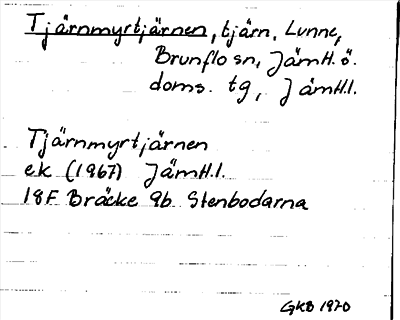 Tjärnmyrtjärnen, tjärn, Lunne,
Brunflo sn, Jämtl. ö.
doms. tg, Jämtl.l.
Tjärnmyrtjärnen
ek (1967) Jämtl.l.
18F Bräcke 9b Stenbodarna
GKB 1970